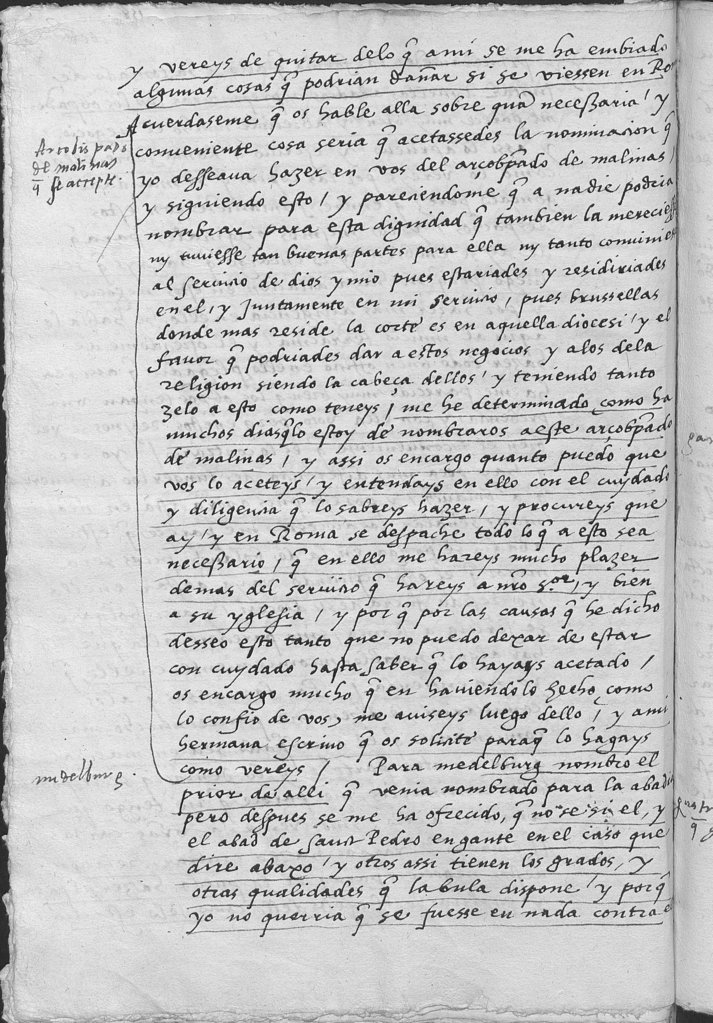 y vereys de quitar delo q̃ ami se me ha embiado
algunas cosas q̃ podrian dañar si se viessen en Ro
Acuerdaseme q̃ os hable alla sobre quã necessaria / y
Arcobispado
de malinas
q̃ se accepte.
conveniente cosa seria q̃ acetassedes la nominacion q̃
yo desseava hazer en vos del arçobp̃ado de malinas
y siguiendo esto / y pareciendome q̃ a nadie podria
nombrar para esta dignidad q̃ tambien la mereciesse
ny tuviesse tan buenas partes para ella ny tanto convinie
al servicio de dios y mio pues estariades y residiriades
en el, y juntamente en mi servicio / pues brussellas
donde mas reside la corte es en aquella diocesi / y el
favor q̃ podriades dar a estos negocios y alos dela
religion siendo la cabeça dellos / y teniendo tanto
zelo a esto como teneys / me he determinado como ha
muchos dias q̃ lo estoy de nombraros a este arçobp̃ado
de malinas / y assi os encargo quanto puedo que
vos lo aceteys / y entendays en ello con el cuydado
y diligencia q̃ lo sabreys hazer / y procureys que
ay / y en Roma se despache todo lo q̃ a esto sea
necessario / q̃ en ello me hareys mucho plazer
demas del servicio q̃ hareys a nr̃o s.or, y bien
a su yglesia / y porq̃ por las causas q̃ he dicho
desseo esto tanto que no puedo dexar de estar
con cuydado hasta saber q̃ lo hayays acetado /
os encargo mucho q̃ en haviendolo hecho como
lo confio de vos, me aviseys luego dello / y ami
hermana escrivo q̃ os solicite paraq̃ lo hagays
como vereys / Para medelburg nombro el
midelburg.
prior de alli q̃ venia nombrado para la abad
pero despues se me ha ofrecido, q̃ no se si el, y
el abad de sanct Pedro en gante en el caso que
dire abaxo / y otros assi tienen los grados, y
otras qualidades q̃ la bula dispone / y porq̃
yo no querria q̃ se fuesse en nada contra e